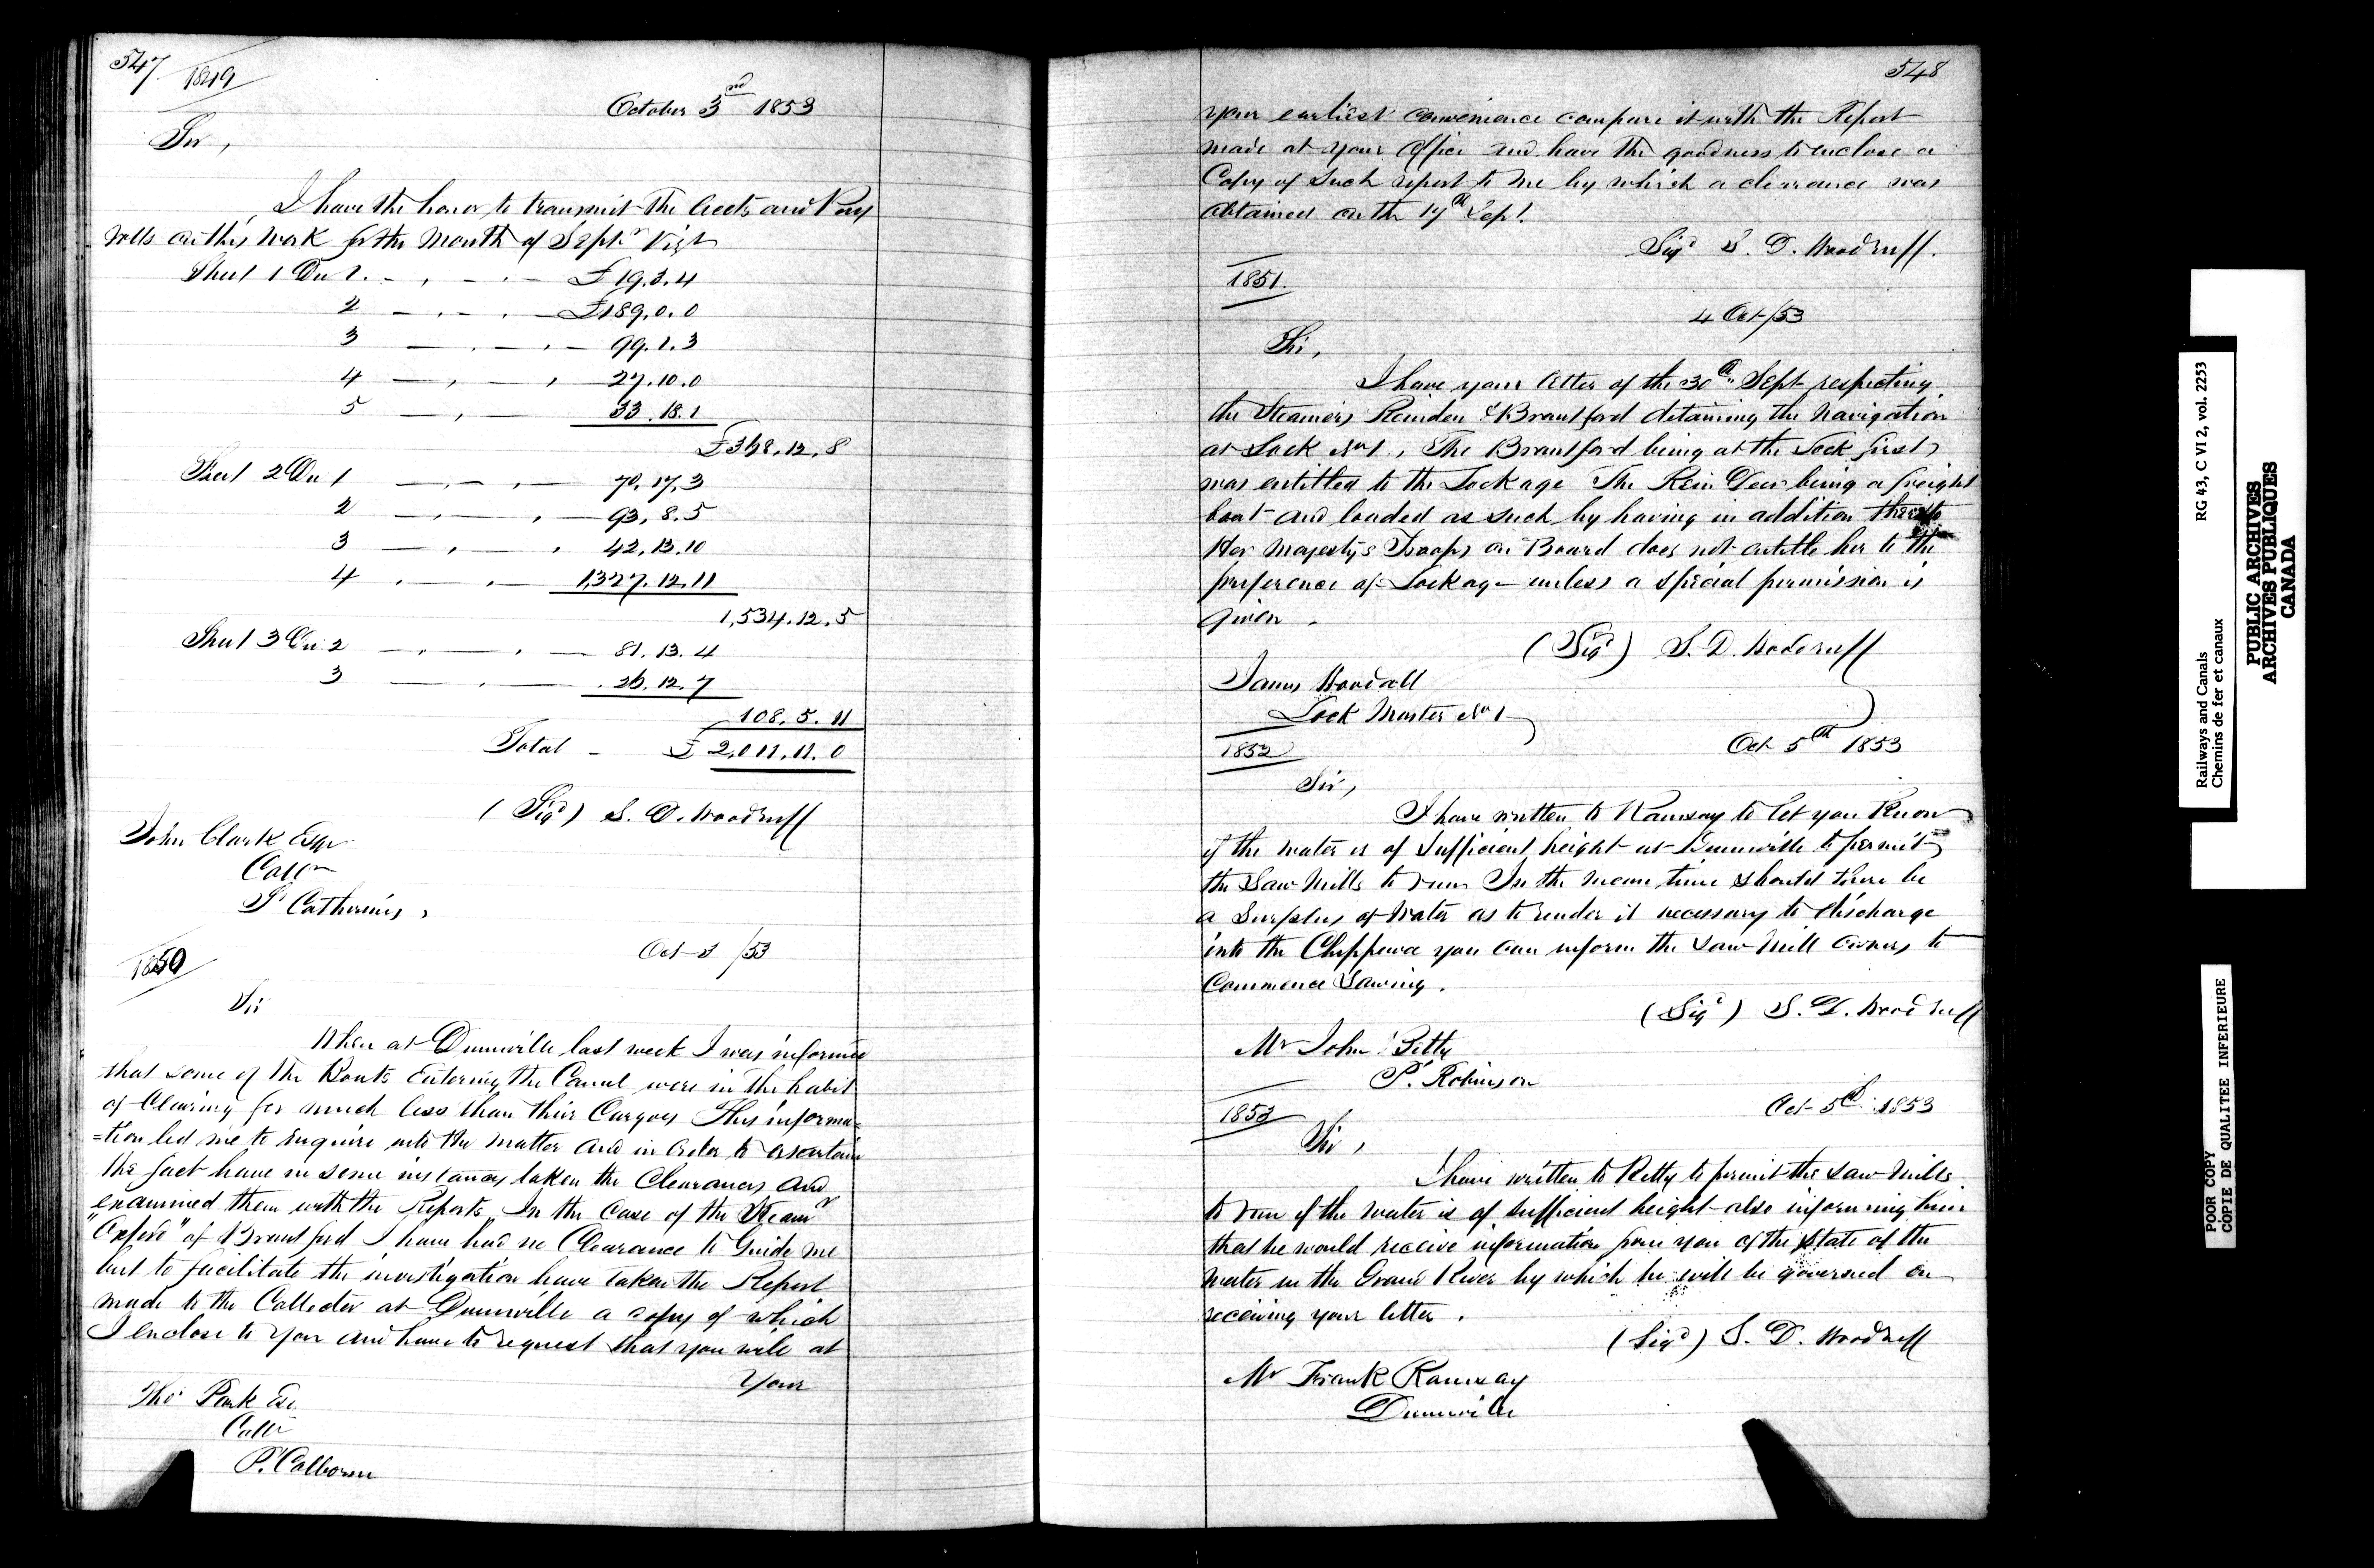 547
1849
October 3rd 1853
Sir,
I have the honor to transmit the Accts and Pay
rolls on this work for the Month of Septr Vizt
Sheet 1 Du 1. £19.3.4
2 £189.0.0
3 99.1.3
4 27.10.0
5 33.18.1
£368.12.8
Sheet 2 Du 1 70.17.3
2 93.8.5
3 42.13.10
4 1,327.12.11
1,534.12.5
Sheet 3 Du 2 81.13.4
3 26.12.7
108.5.11
Total - £2,011.11.0
(Sigd) S. D. Woodruff
John Clark Esqr
Collr
St Catherines,
1850
Oct 3 /53
Sir
When at Dunnville last week I was informed
that some of the Boats Entering the Canal were in the habit
of Clearing for much less than their Cargoes This informa=
=tion led me to enquire into the matter and in order to ascertain
the fact have in some instances taken the Clearances and
examined them with the Reports In the Case of the Steamr
of Brantford I have had no Clearance to Guide me
but to facilitate the investigation have taken the Report
made to the Collector at Dunnville a copy of which
I enclose to you and have to request that you will at
Your
Thos Park Esq
Collr
P. Colborne
548
your earliest convenience compare it with the Report
made at your Office and have the goodness to enclose a
Copy of Such report to me by which a clearance was
obtained on the 17th Sept.
Sigd S. D. Woodruff.
1851.
4 Oct /53
Sir,
I have your letter of the 30th Sept respecting
the Steamers Reindeer & Brantford detaining the Navigation
at Lock No 1, The Brantford being at the Lock first
was entitled to the Lockage The Rein Deer being a freight
boat and loaded as such by having in addition thereto
Her Majesty's Troops on Board does not entitle her to the
preference of Lockage unless a special permission is
given.
(Sigd) S. D. Woodruff
James Woodall
Lock Master No 1
1852
Oct 5th 1853
Sir,
I have written to Ramsay to let you Know
if the water is of Sufficient height at Dunnville to permit
the Saw Mills to run In the mean time should there be
a Surplus of Water as to render it necessary to discharge
into the Chippewa you can inform the Saw Mill owners to
Commence Sawing.
(Sigd) S. D. Woodruff
Mr John Petty
P. Robinson
1853
Oct 5th 1853
Sir,
I have written to Petty to permit the Saw Mills
to run if the water is of sufficient height also informing him
that he would receive information from you of the state of the
Water in the Grand River by which he will be governed on
receiving your letter.
(Sigd) S. D. Woodruff
Mr Frank Ramsay
Dunnville
Railways and Canals
Chemins de fer et canaux
RG 43, C VI 2, vol. 2253
PUBLIC ARCHIVES
ARCHIVES PUBLIQUES
CANADA
POOR COPY
COPIE DE QUALITEE INFERIEURE